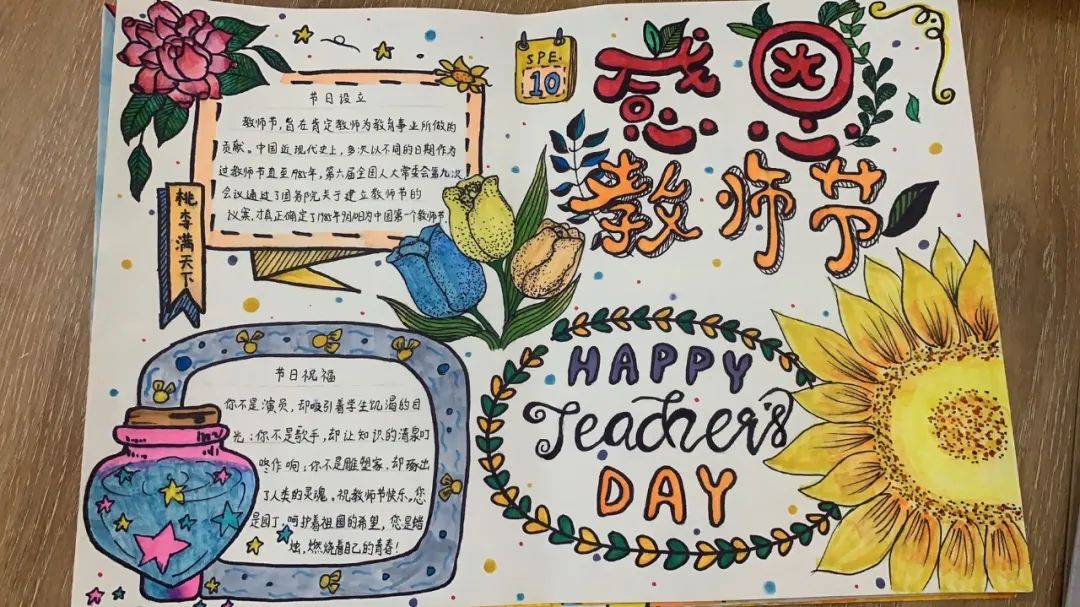 节日设立
教师节，旨在肯定教师为教育事业所做的
贡献。中国近现代史上，多次以不同的日期作为
过教师节直至1985年，第六届全国人大常委会第九次
会议通过了国务院关于建立教师节的
议案，才真正确定了1985年9月10日为中国第一个教师节
桃李满天下
SPE.
10
感恩
教师节
节日祝福
你不是演员，却吸引着学生饥渴的目
光；你不是歌手，却让知识的清泉叮
咚作响；你不是雕塑家，却琢出
了人类的灵魂。祝教师节快乐。您
是园丁，呵护着祖国的希望，您是蜡
烛，燃烧着自己的青春！
HAPPY
Teacher's
DAY